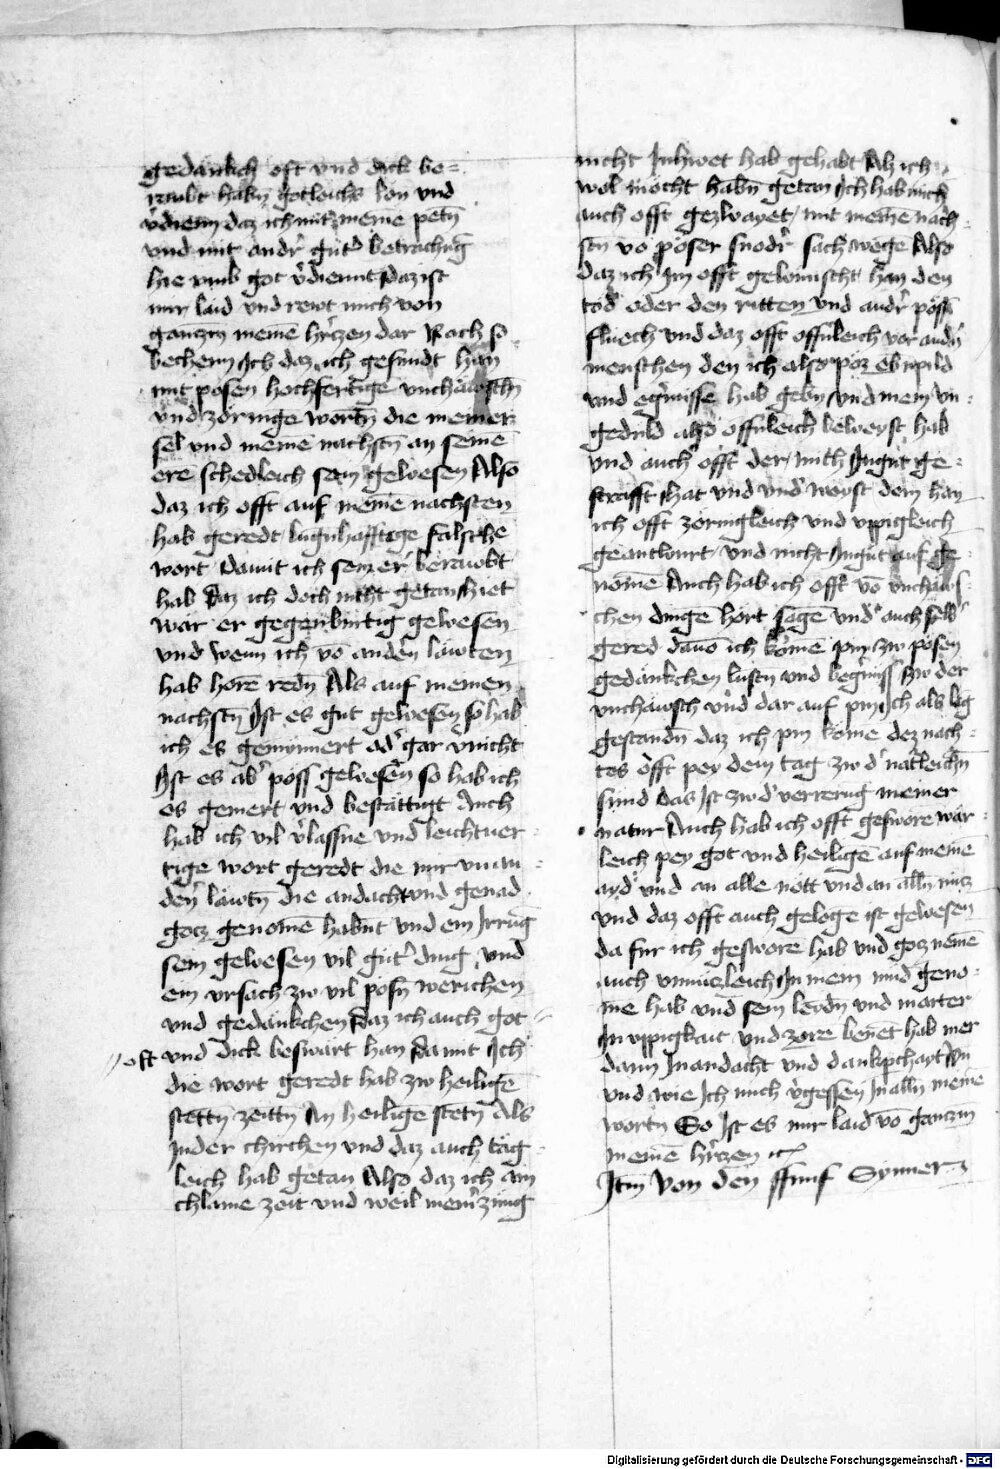 gedänkch oft vnd dick be=
raubt habn gotleichs lon vnd
v̉dienn daz ich mit meinē petn̄
vnd mit andr̉ gut̉ betrachūg
hie vmb got v̉dienut daz ist
mir laid vnd rewt mich von
ganczm̄ meinē hr̉czen dar Nach so
bechenn Ich daz ich gesundt han
mit posen hochfertige vnchäwschn
vnd zoringe wortn̄ die meiner
sel vnd meinē nachstn̄ an seinē
ere schedleich sein gewesen Also
daz ich offt auf meinē nachsten
hab geredt lugnhafftige falsche
wort damit ich sein er beraubt
hab Daz ich doch nicht getan hiet
wär er gegenburtig gewesen
vnd wenn ich vō andern läwten
hab horē redn̄ Als auf meinen
nachstn̄ Ist es gut gewesen so hab
ich es geminnert od̉ gar v̉nicht
Ist es ab̉ poss gewesen so hab ich
es gemert vnd bestättigt Auch
hab ich vil v̉lassne vnd leichtuer=
tige wort geredt die mir vn an=
dern̉ läwtn̄ die andacht vnd genad
gocz genomē habnt vnd ein Irruḡ
sein gewesen vil gut̉ ding vnd
ein vrsach zw vil posn̄ werichen
vnd gedänkchen Daz ich auch got
oft vnd dick beswärt han Damit Ich
die wort geredt hab zw heiligē
stettn zeittn̄ An heilige stetn̄ Als
Inder chirchen vnd daz auch täg=
leich hab getan Also daz ich ain
chlaine zeit vnd weil mein̉ zūng
nicht Inhwet hab gehabt Als ich
wol möcht habn̄ getan Ich hab mich
auch offt gezwayet mit meinē nach=
stn̄ vō poser snodr̉ sach wegē Also
daz ich Im offt gewünscht han den
tod oder den ritten vnd andr̉ poss
fluech vnd daz offt offnleich vor andn̉
menschen den ich also poz ebnpild
vnd erg̉nisse hab gebn̄ vnd mein vn=
geduld also offnleich beweyst hab
vnd auch offt der mich Ingut ge=
strafft hat vnd vnd̉weyst dem han
ich offt zoringleich vnd vppigleich
geantwurt vnd nicht Ingut auf ge
nomē Auch hab ich offt vō vnchäws=
chen dinge hort sagē vnd auch selb̉
gered dauō ich komē pin zw posen
gedänkchen lustn̄ vnd beg̉niss zw der
vnchäwsch vnd dar auf pin Ich als lāg
gestandn̄ daz ich pin kome dez nach=
tes offt pey dem tag zw d̉ natleichn̄
sünd das Ist zw d̉ verrerug meiner
natur Auch hab ich offt geswore wär=
leich pey got vnd heiligē auf meinē
ayd vnd an alle nott vnd an alln̄ nucz
vnd daz offt auch geloge ist gewesen
da fur ich geswore hab vnd gocz nemē
auch vnnüczleich In mein mūd geno=
me hab vnd sein leydn̄ vnd marter
In vppigkait vnd zore benēt hab mer
dann In andacht vnd dankpchayt
vnd wie Ich mich v̉gessen In alln̄ meinē
wortn̄ So Ist es mir laid vō ganczm̄
meinē hr̉czen
Itm̄ Von den ffunf Synnen